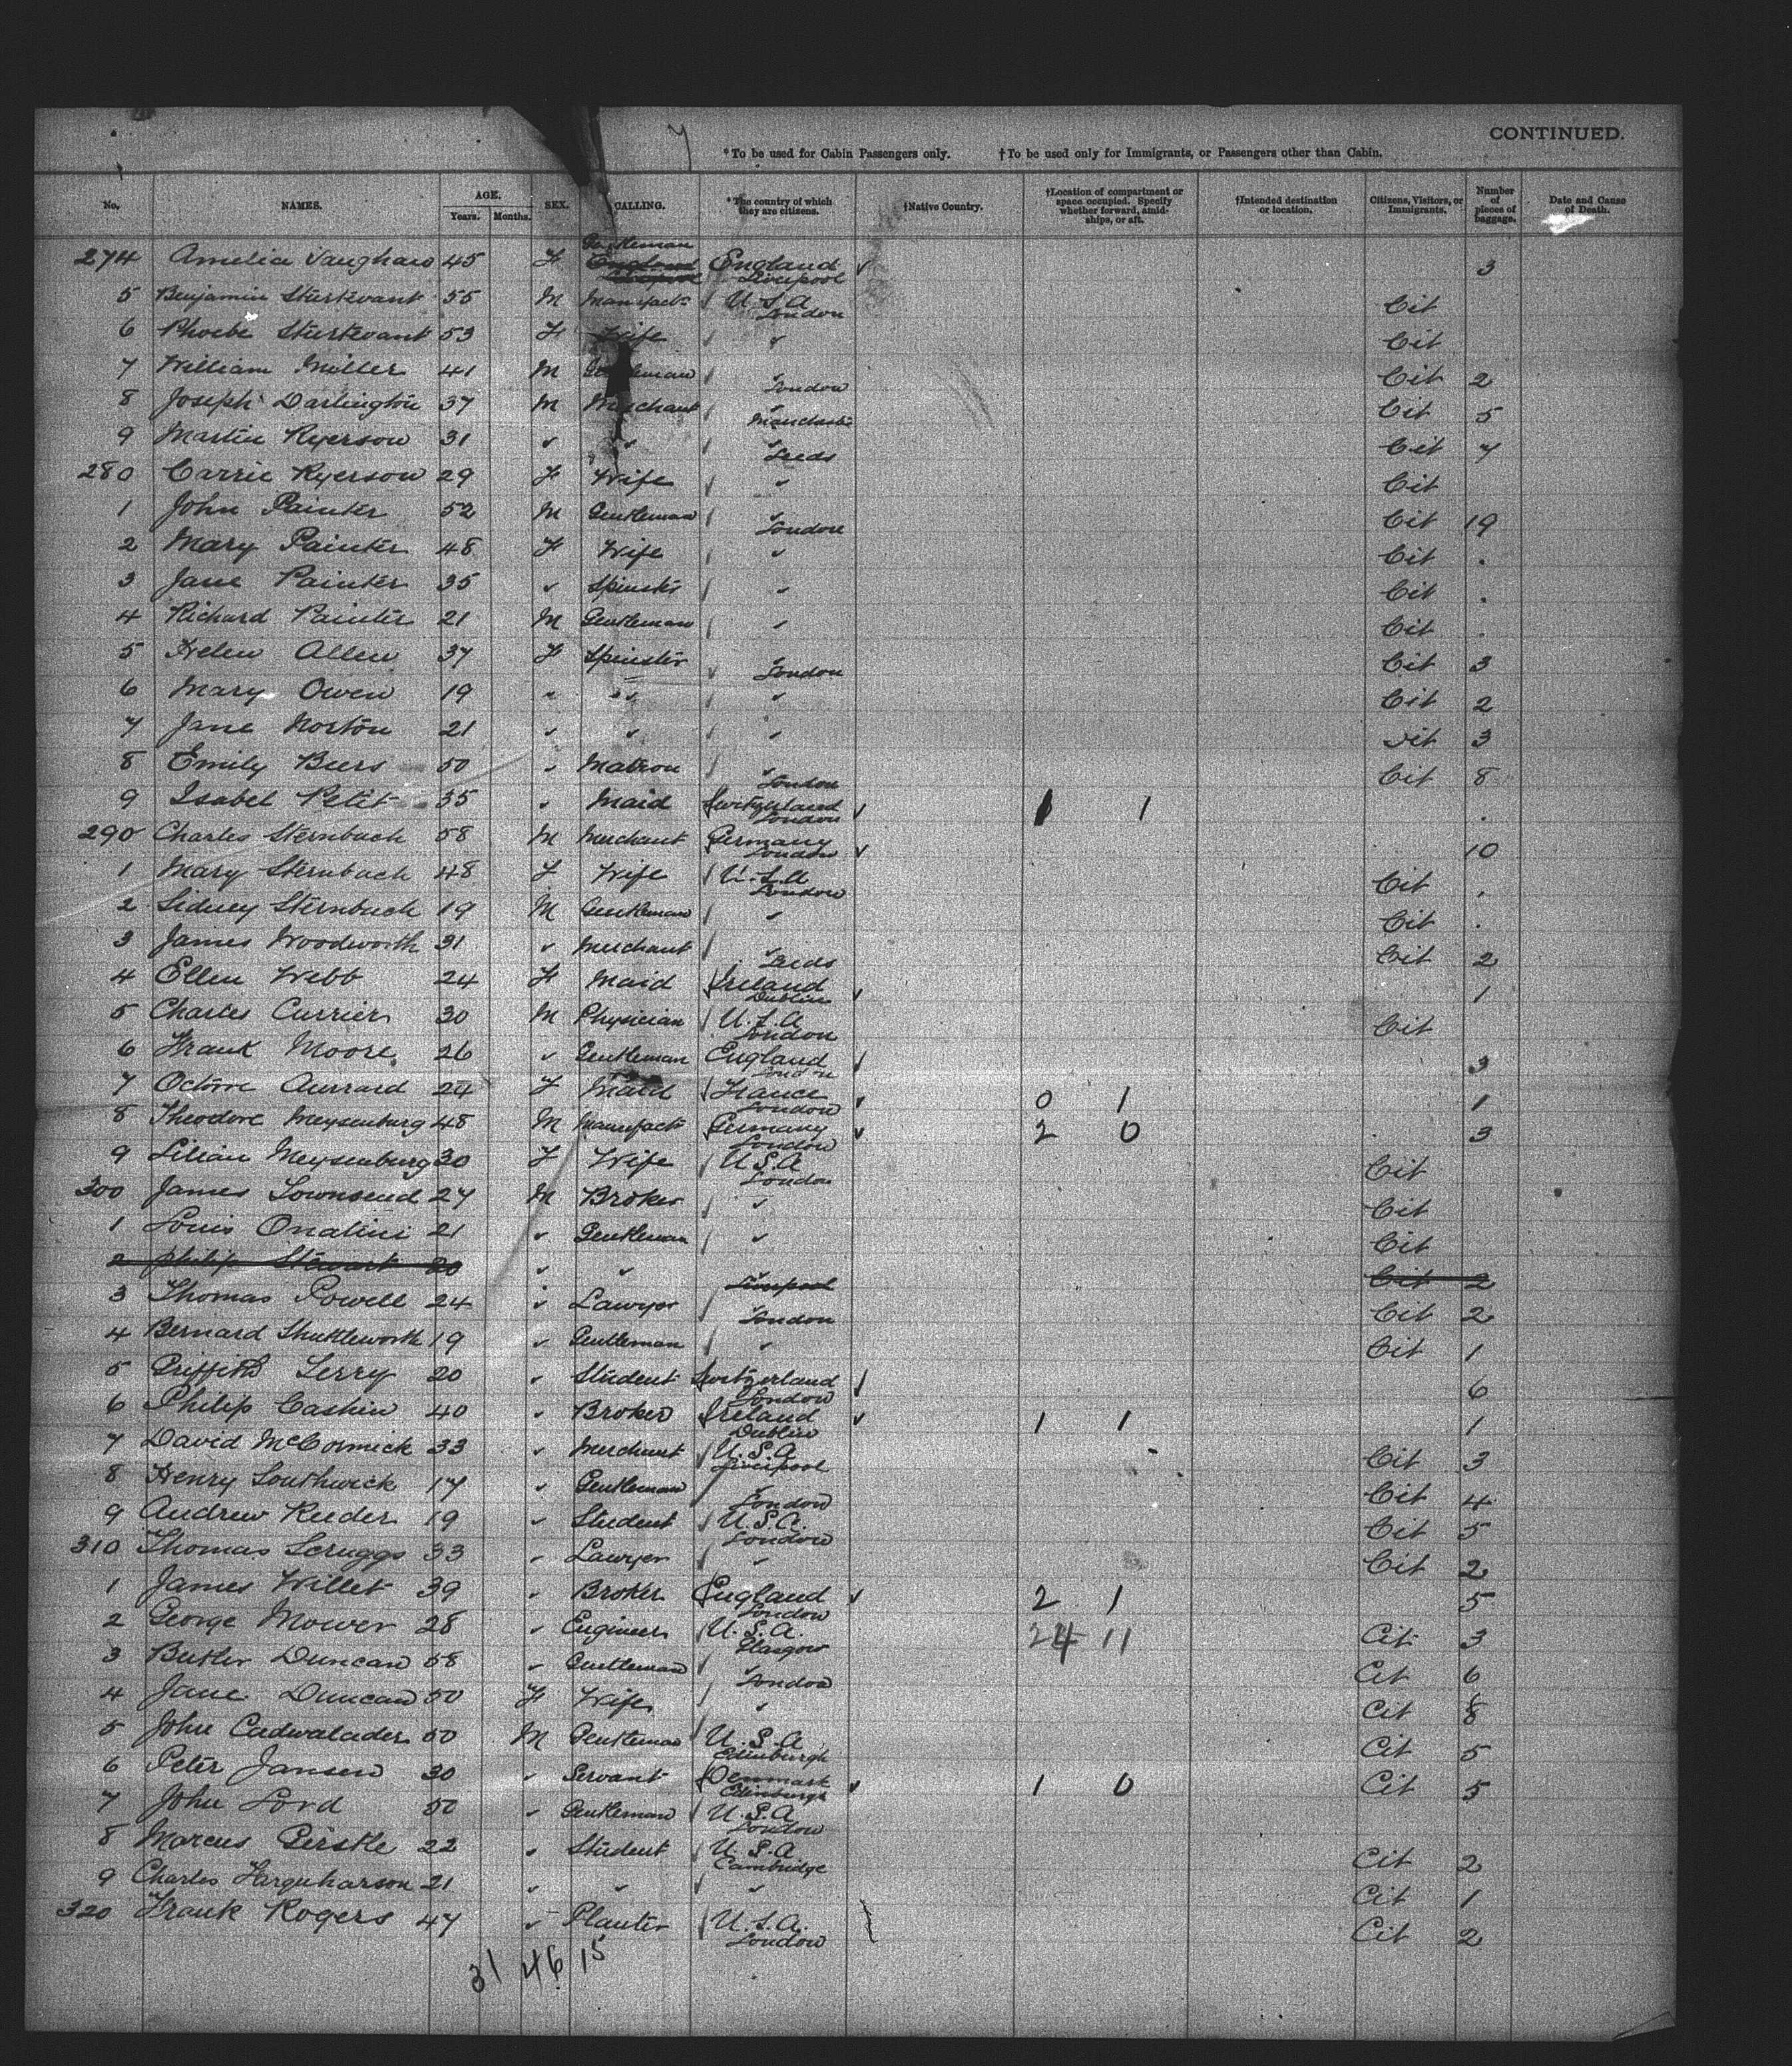 CONTINUED.
*To be used for Cabin Passengers only. †To be used only for Immigrants, or Passengers other than Cabin.
No. NAMES. AGE. Years. Months. SEX. CALLING. *The country of which they are citizens. †Native Country. †Location of compartment or space occupied. Specify whether forward, amidships, or aft. †Intended destination or location. Citizens, Visitors, or Immigrants. Number of pieces of baggage. Date and Cause of Death.
274 Amelia Vaughan 45 F Gentleman England Liverpool 3
5 Benjamin Sturtevant 55 M Manufact U.S.A London Cit
6 Phoebe Sturtevant 53 F Wife " Cit
7 William Miller 41 M Gentleman " London Cit 2
8 Joseph Darlington 37 M Merchant " Manchester Cit 5
9 Martin Ryerson 31 " " " Leeds Cit 7
280 Carrie Ryerson 29 F Wife " Cit
1 John Painter 52 M Gentleman " London Cit 19
2 Mary Painter 48 F Wife " Cit .
3 Jane Painter 35 " Spinster " Cit .
4 Richard Painter 21 M Gentleman " Cit .
5 Helen Allen 37 F Spinster " London Cit 3
6 Mary Owen 19 " " " Cit 2
7 Jane Norton 21 " " " Cit 3
8 Emily Beers 50 " Matron " London Cit 8
9 Isabel Petit 35 " Maid Switzerland London 1 1 .
290 Charles Sternbach 58 M Merchant Germany London 10
1 Mary Sternbach 48 F Wife U.S.A London Cit .
2 Sidney Sternbach 19 M Gentleman " Cit .
3 James Woodworth 31 " Merchant " Leeds Cit 2
4 Ellen Webb 24 F Maid Ireland Dublin 1
5 Charles Currier 30 M Physician U.S.A London Cit
6 Frank Moore 26 " Gentleman England London 3
7 24 F Maid France London 0 1 1
8 Theodore Meysenburg 48 M Manufact Germany London 2 0 3
9 Lilian Meysenburg 30 F Wife U.S.A London Cit
300 James Townsend 27 M Broker " Cit
1 Louis Onatini 21 " Gentleman " Cit
2 Philip Stewart 20 " " " Liverpool Cit 2
3 Thomas Powell 24 " Lawyer " London Cit 2
4 Bernard Shuttleworth 19 " Gentleman " Cit 1
5 Griffith Terry 20 " Student Switzerland London 6
6 Philip Cashin 40 " Broker Ireland Dublin 1 1 1
7 David McCormick 33 " Merchant U.S.A Liverpool Cit 3
8 Henry Southwick 17 " Gentleman " London Cit 4
9 Andrew Reeder 19 " Student U.S.A. London Cit 5
310 Thomas Scruggs 33 " Lawyer " Cit 2
1 James Willet 39 " Broker England London 2 1 5
2 George Mower 28 " Engineer U.S.A. Glasgow 24 11 Cit 3
3 Butler Duncan 58 " Gentleman " London Cit 6
4 Jane Duncan 50 F Wife " Cit 8
5 John Cadwalader 50 M Gentleman U.S.A Edinburgh Cit 5
6 Peter Jansen 30 " Servant Denmark Edinburgh 1 0 Cit 5
7 John Lord 50 " Gentleman U.S.A London
8 Marcus Gerstle 22 " Student U.S.A Cambridge Cit 2
9 Charles Farquharson 21 " " " Cit 1
320 Frank Rogers 47 " Planter U.S.A. London Cit 2
31 46 15